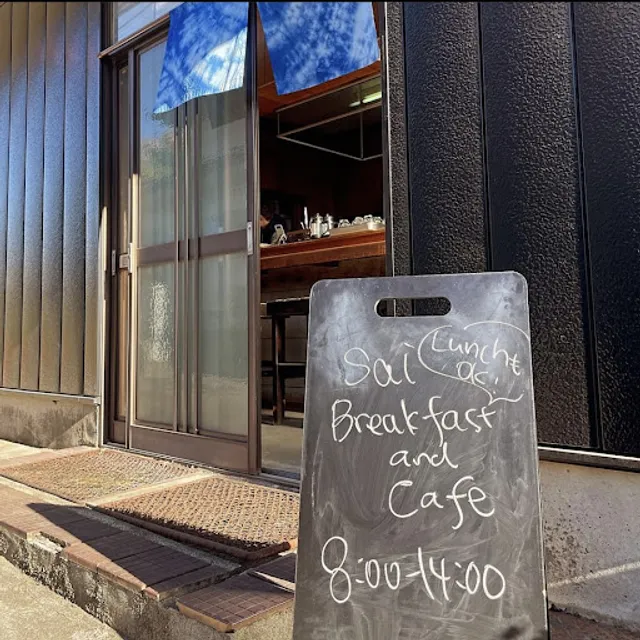 Sai
Lunch
OK!
Breakfast
and
Cafe
8:00-14:00